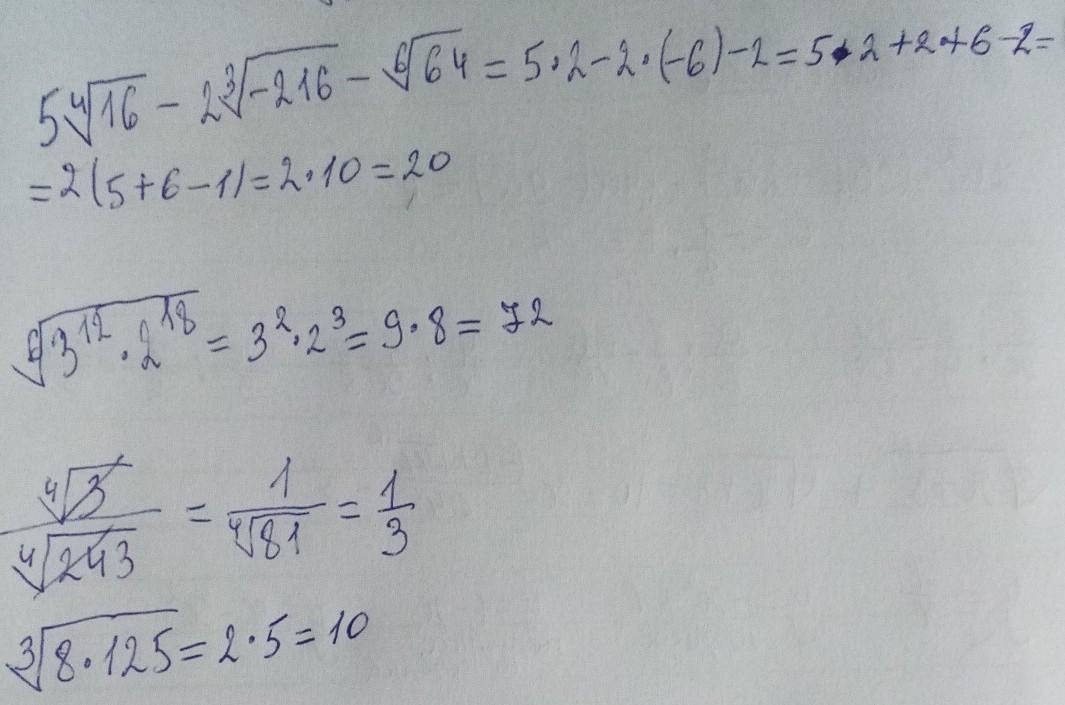 5∜16 − 2∛−216 − ⁶√64 = 5·2 − 2·(−6) − 2 = 5·2 + 2·+6 − 2 =
= 2(5 + 6 − 1) = 2·10 = 20
⁶√3¹² · 2¹⁸ = 3² · 2³ = 9·8 = 72
∜3 / ∜243 = 1 / ∜81 = 1/3
∛8·125 = 2·5 = 10